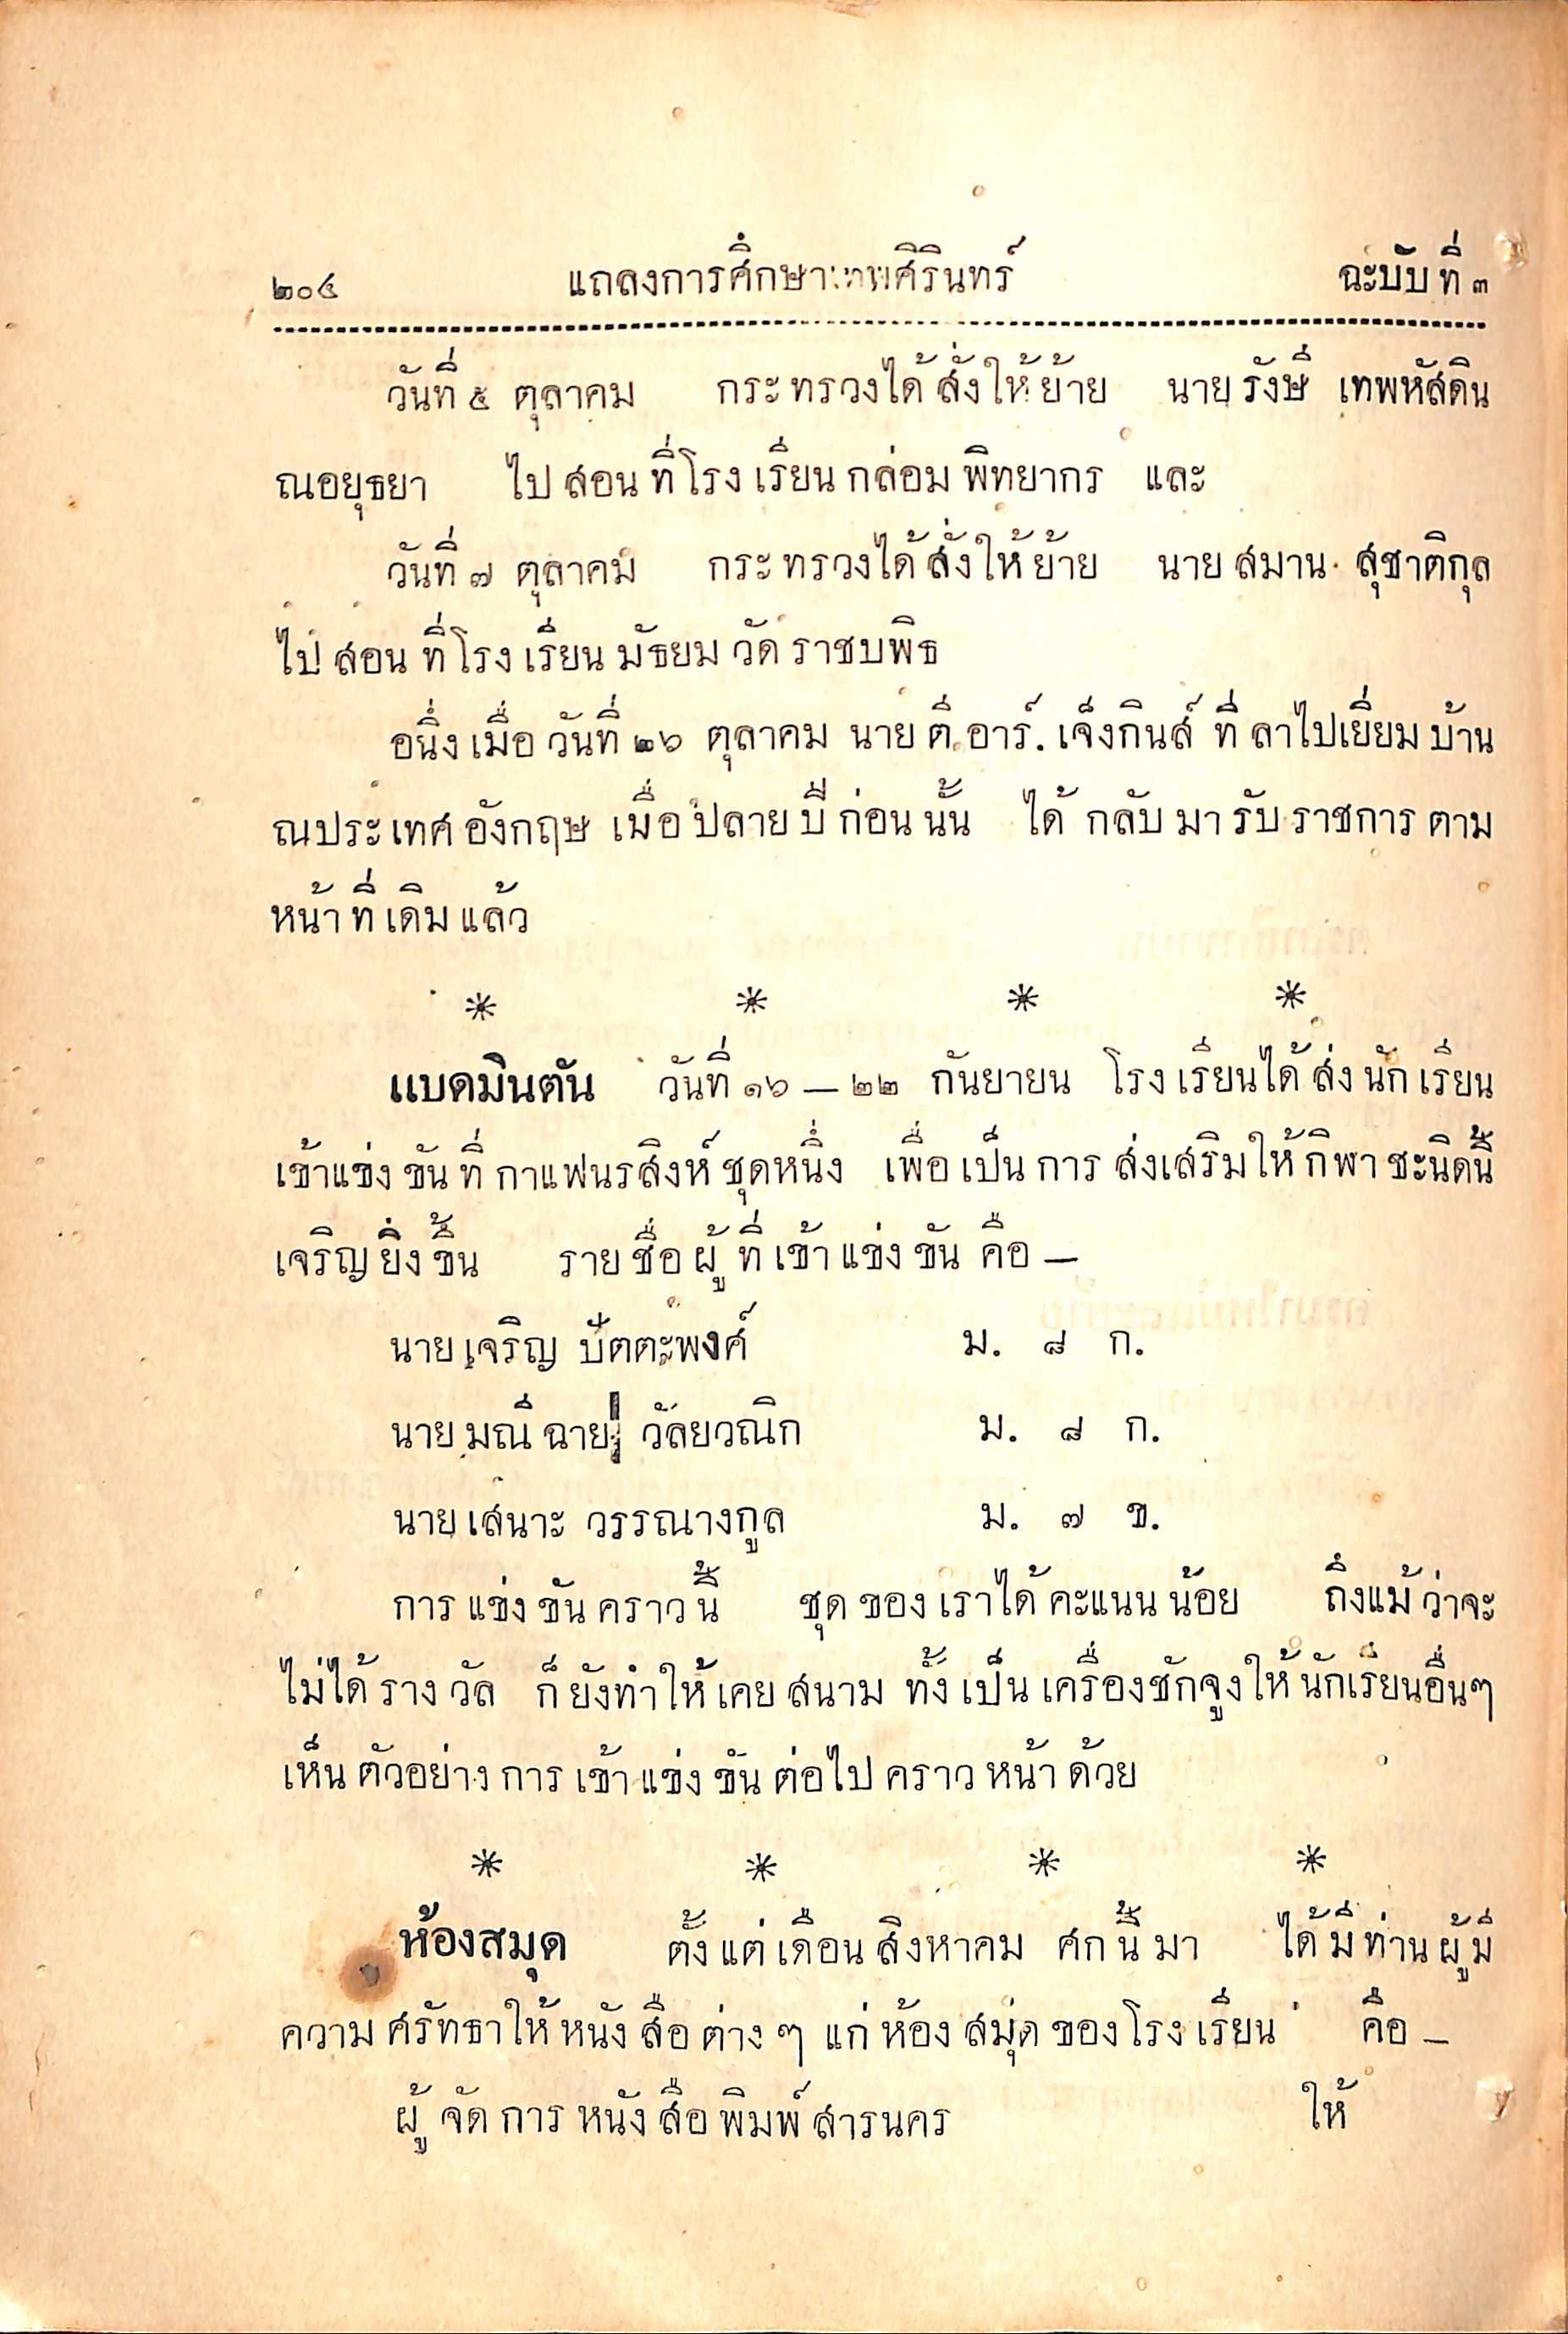 ๒๐๔ แถลงการศึกษาเทพศิรินทร์ ฉะบับที่ ๓
วันที่ ๕ ตุลาคม กระทรวงได้สั่งให้ย้าย นายรังษี เทพหัสดิน
ณอยุธยา ไปสอนที่โรงเรียนกล่อมพิทยากร และ
วันที่ ๗ ตุลาคม กระทรวงได้สั่งให้ย้าย นายสมาน สุชาติกุล
ไปสอนที่โรงเรียนมัธยมวัดราชบพิธ
อนึ่งเมื่อวันที่ ๒๖ ตุลาคม นายตี. อาร์. เจ็งกินส์ ที่ลาไปเยี่ยมบ้าน
ณประเทศอังกฤษ เมื่อปลายปีก่อนนั้น ได้กลับมารับราชการตาม
หน้าที่เดิมแล้ว
* * * *
แบดมินตัน วันที่ ๑๖ — ๒๒ กันยายน โรงเรียนได้ส่งนักเรียน
เข้าแข่งขันที่กาแฟนรสิงห์ชุดหนึ่ง เพื่อเป็นการส่งเสริมให้กีฬาชะนิดนี้
เจริญยิ่งขึ้น รายชื่อผู้ที่เข้าแข่งขัน คือ —
นายเจริญ ปัตตะพงศ์ ม. ๘ ก.
นายมณีฉาย วัลยวณิก ม. ๘ ก.
นายเสนาะ วรรณางกูล ม. ๗ ข.
การแข่งขันคราวนี้ ชุดของเราได้คะแนนน้อย ถึงแม้ว่าจะ
ไม่ได้รางวัล ก็ยังทำให้เคยสนาม ทั้งเป็นเครื่องชักจูงให้นักเรียนอื่นๆ
เห็นตัวอย่างการเข้าแข่งขันต่อไปคราวหน้าด้วย
* * * *
ห้องสมุด ตั้งแต่เดือนสิงหาคม ศกนี้มา ได้มีท่านผู้มี
ความศรัทธาให้หนังสือต่าง ๆ แก่ห้องสมุดของโรงเรียน คือ —
ผู้จัดการหนังสือพิมพ์สารนคร ให้